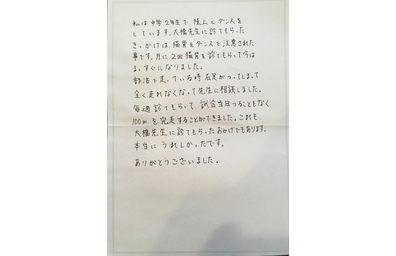 私は中学2年生で陸上とダンスを
しています。大橋先生に診てもらった
きっかけは猫背をダンスで注意された
事です。月に2回猫背を診てもらって今は
まっすぐになりました。
部活で走っている時、右足がつってしまって
全く走れなくなって先生に相談しました。
毎週診てもらって、試合当日つることもなく
100mを完走することができました。これも
大橋先生に診てもらったおかげでもあります。
本当にうれしかったです。
ありがとうございました。